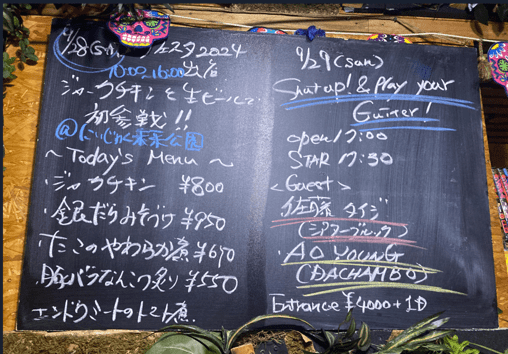 9/28(Sat) フェスタ2024
10:00~16:00 出店
ジャークチキンと生ビールで
初参戦!!
@にいじゅく未来公園
~Today's Menu~
・ジャークチキン ¥800
・銀だらみそづけ ¥950
・たこのやわらか煮 ¥690
・豚バラなんこつ炙り ¥550
・エンドウミートのトマト煮
9/29(sun)
Shut up! & Play your
Guiter!
open 17:00
STAR 17:30
<Guest>
佐藤 タイジ
(シアターブルック)
・AO YOUNG
(DACHAMBO)
Entrance ¥4000+1D